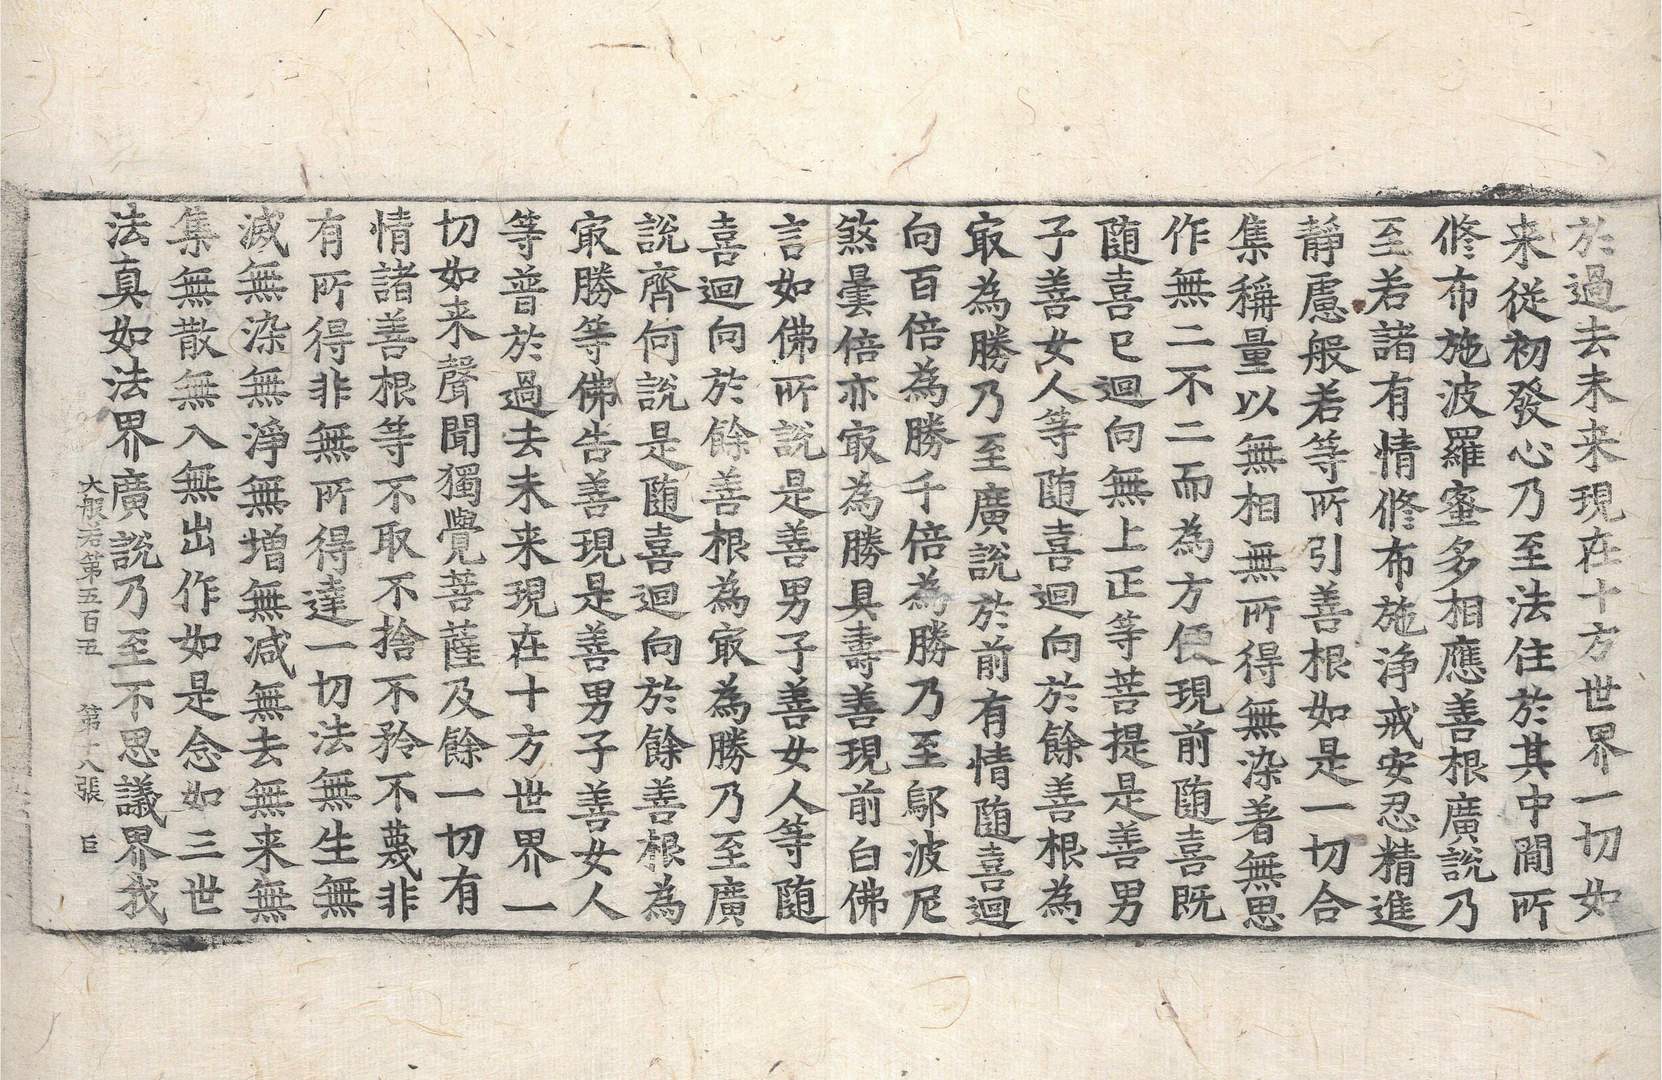 於過去未来現在十方世界一切如
来従初發心乃至法住於其中間所
修布施波羅蜜多相應善根廣說乃
至若諸有情修布施淨戒安忍精進
靜慮般若等所引善根如是一切合
集稱量以無相無所得無染著無思
作無二不二而為方便現前随喜既
随喜已迴向無上正等菩提是善男
子善女人等随喜迴向於餘善根為
㝡為勝乃至廣說於前有情随喜迴
向百倍為勝千倍為勝乃至鄔波尼
煞曇倍亦㝡為勝具壽善現前白佛
言如佛所說是善男子善女人等随
喜迴向於餘善根為㝡為勝乃至廣
說齊何說是随喜迴向於餘善根為
㝡勝等佛告善現是善男子善女人
等普於過去未来現在十方世界一
切如来聲聞獨覺菩薩及餘一切有
情諸善根等不取不捨不矜不蔑非
有所得非無所得達一切法無生無
滅無染無淨無增無減無去無来無
集無散無入無出作如是念如三世
法真如法界廣說乃至不思議界我
大般若第五百五　第十八張　巨